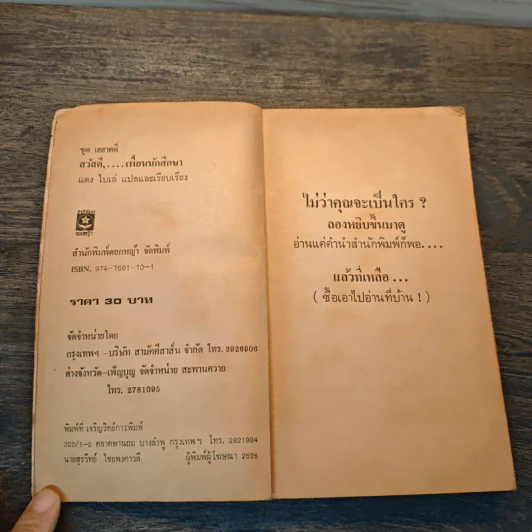 ชุด เฮฮาคดี
สวัสดี,....เพื่อนนักศึกษา
แดง ใบเล่ แปลและเรียบเรียง
ดอกหญ้า
สำนักพิมพ์ดอกหญ้า จัดพิมพ์
ISBN. 974-7661-10-1
ราคา 30 บาท
จัดจำหน่ายโดย
กรุงเทพฯ -บริษัท สามัคคีสาส์น จำกัด โทร. 3926906
ต่างจังหวัด-เพ็ญบุญ จัดจำหน่าย สะพานควาย
โทร. 2781095
พิมพ์ที่ เจริญวิทย์การพิมพ์
322/1-2 ตลาดพานถม บางลำพู กรุงเทพฯ โทร. 2821994
นายสุรวิทย์ ไชยพงศาวลี ผู้พิมพ์ผู้โฆษณา 2526
ไม่ว่าคุณจะเป็นใคร ?
ลองหยิบขึ้นมาดู
อ่านแค่คำนำสำนักพิมพ์ก็พอ....
แล้วที่เหลือ...
( ซื้อเอาไปอ่านที่บ้าน ! )